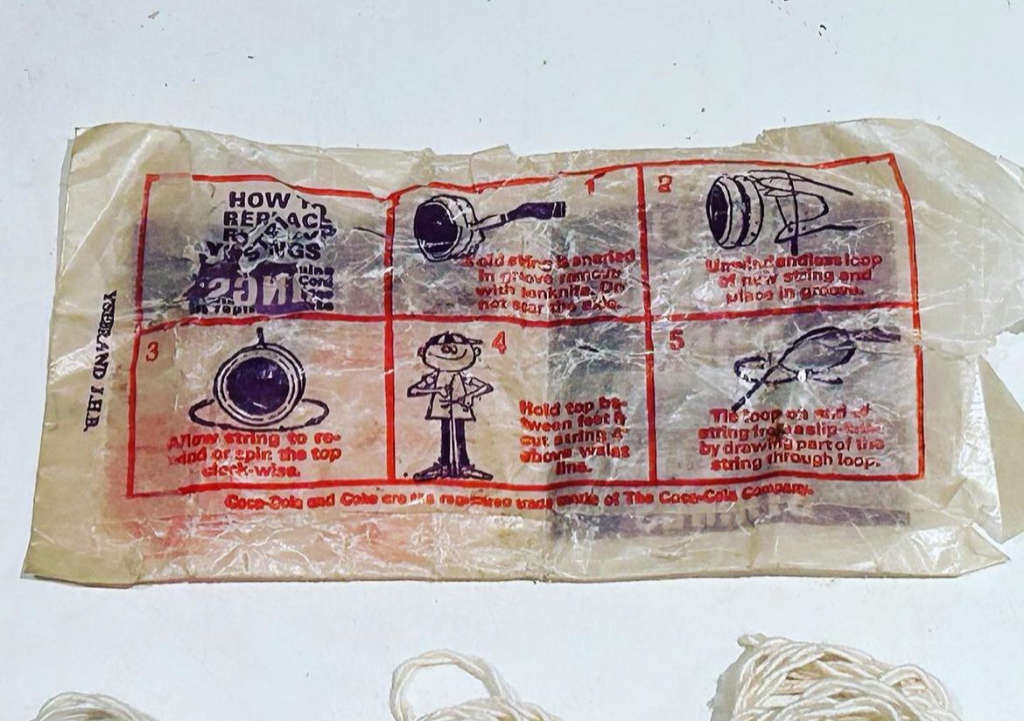 HOW T
REPLAC
INGS
1
old string is snarled
in groove remove
with penknife. Do
not scar the axle.
2
Unwind endless loop
of new string and
place in groove.
3
Allow string to re-
wind or spin the top
clock-wise.
4
Hold top be-
tween feet &
cut string 4"
above waist
line.
5
Tie loop on end of
string
by drawing part of the
string through loop.
Coca-Cola and Coke are the registered trade marks of The Coca-Cola Company.